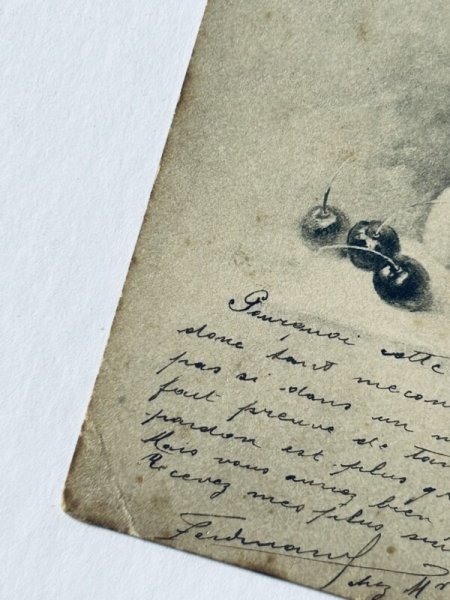 Pourquoi cette
donc tant mecon
pas si dans un m
fait preuve de tan
pardon est plus gr
Mais vous aurez bien
Recevez mes plus sin
Ferdinand
chez Mr